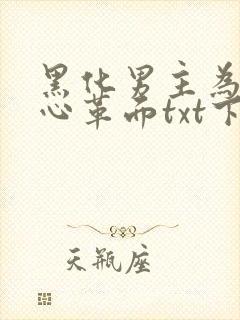 黑化男主為
心革而txt下
天瓶座